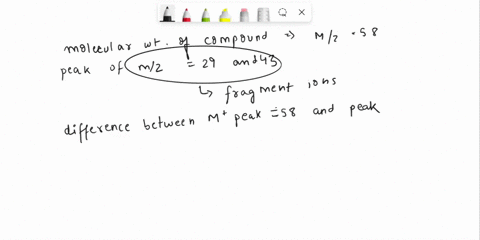 molecular wt. of compound → M/2 = 58
peak of m/2 = 29 and 43
↳ fragment ions
difference between M+ peak = 58 and peak